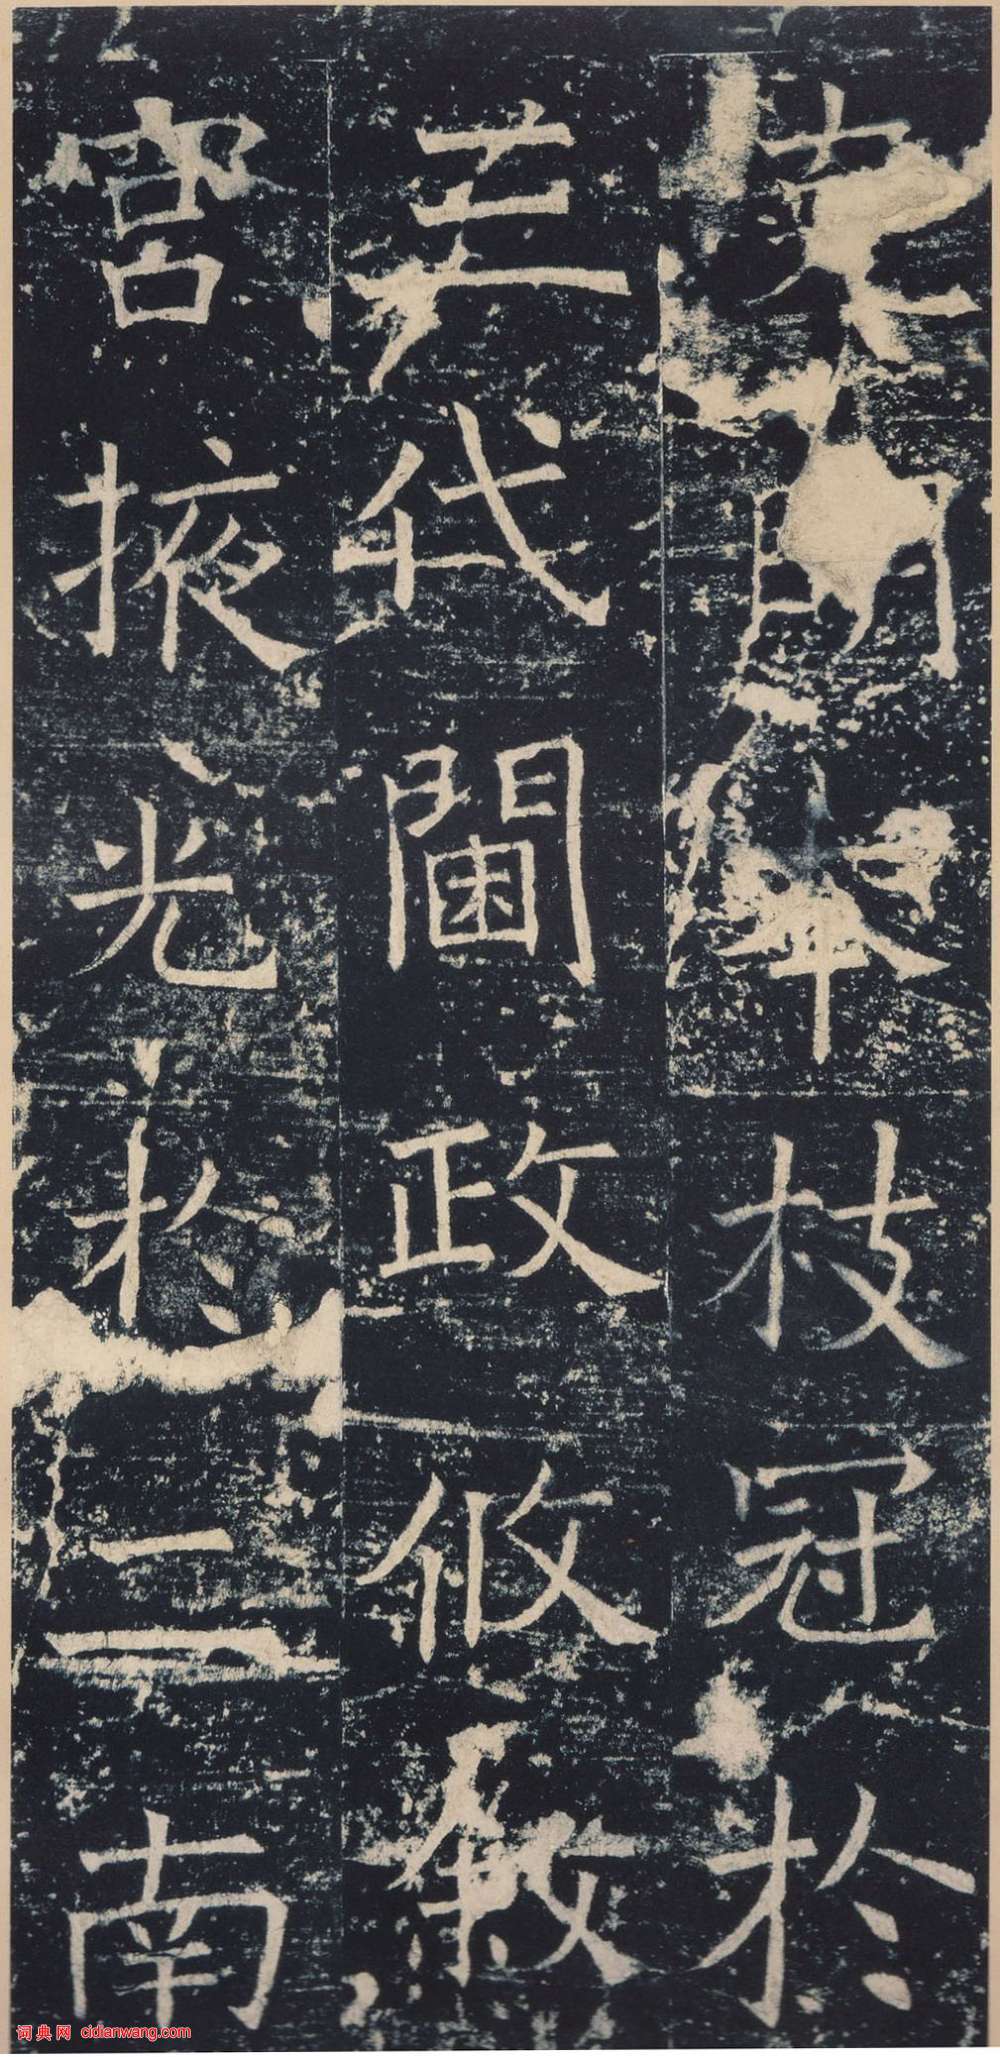 夲枝冠於
三代閫政攸敘
宮掖光於二南
词典网 cidianwang.com